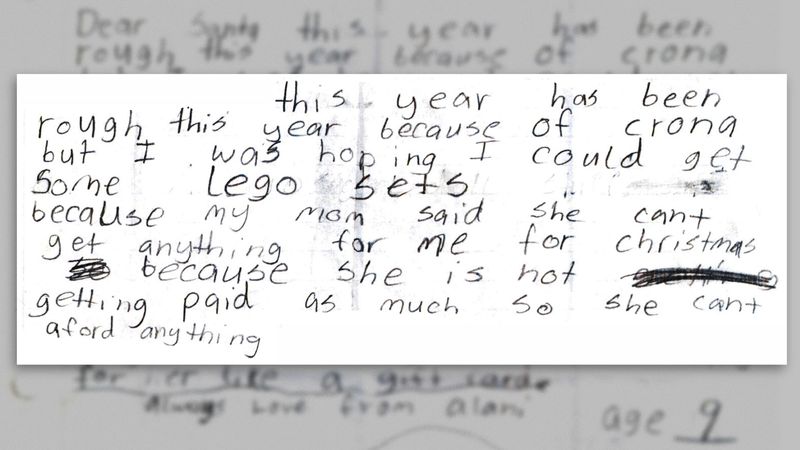 Dear Santa this year has been
rough this year because of crona
this year has been
rough this year because of crona
but I was hoping I could get
Some Lego sets
because my mom said she cant
get anything for me for christmas
because she is not
getting paid as much so she cant
aford anything
for her like a gift card.
Always Love from alani
age 9